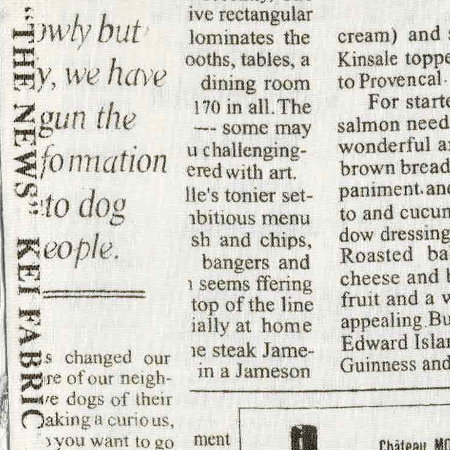 "THE NEWS" KEI FABRIC
owly but
y, we have
gun the
fomation
to dog
eople.
s changed our
re of our neigh-
ve dogs of their
aking a curious,
you want to go
ive rectangular
lominates the
ooths, tables, a
dining room
170 in all. The
-- some may
u challenging-
ered with art.
lle's tonier set-
nbitious menu
sh and chips,
bangers and
seems ffering
top of the line
ially at home
ne steak Jame-
in a Jameson
ment
cream) and s
Kinsale toppe
to Provencal
For starte
salmon need
wonderful a
brown bread
paniment, an
to and cucun
dow dressing
Roasted ba
cheese and b
fruit and a v
appealing Bu
Edward Islan
Guinness and
Château MO